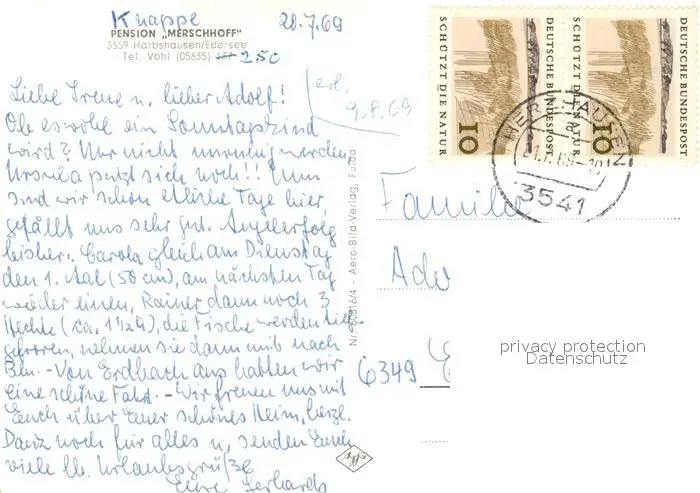 Knappe 20.7.69
PENSION „MERSCHHOFF"
3559 Harbshausen/Edersee
Tel. Vöhl (05635) 250
erl. 9.8.69
Liebe Irene u. lieber Adolf!
Ob es wohl ein Sonntagskind
wird? Nur nicht unruhig werden,
Ursula putzt sich noch!! Nun
sind wir schon etliche Tage hier,
gefällt uns sehr gut. Anglerfolg
bisher: Carola gleich am Dienstag
den 1. Aal (50 cm), am nächsten Tag
wieder einen, Rainer dann noch 3
Hechte (ca. 1 1/2 ), die Fische werden
gefroren, nehmen sie dann mit nach
Bln. - Von Erdbach aus hatten wir
eine schöne Fahrt. - Wir freuen uns mit
Euch über Euer schönes Heim, herzl.
Dank noch für alles u. senden Euch
viele lb. Urlaubsgrüße
Eure Gerhards
Nr. 60816/4 - Aero-Bild-Verlag, Fulda
SCHÜTZT DIE NATUR
10
DEUTSCHE BUNDESPOST
SCHÜTZT DIE NATUR
10
DEUTSCHE BUNDESPOST
3541
Familie
Ado
6349
privacy protection
Datenschutz